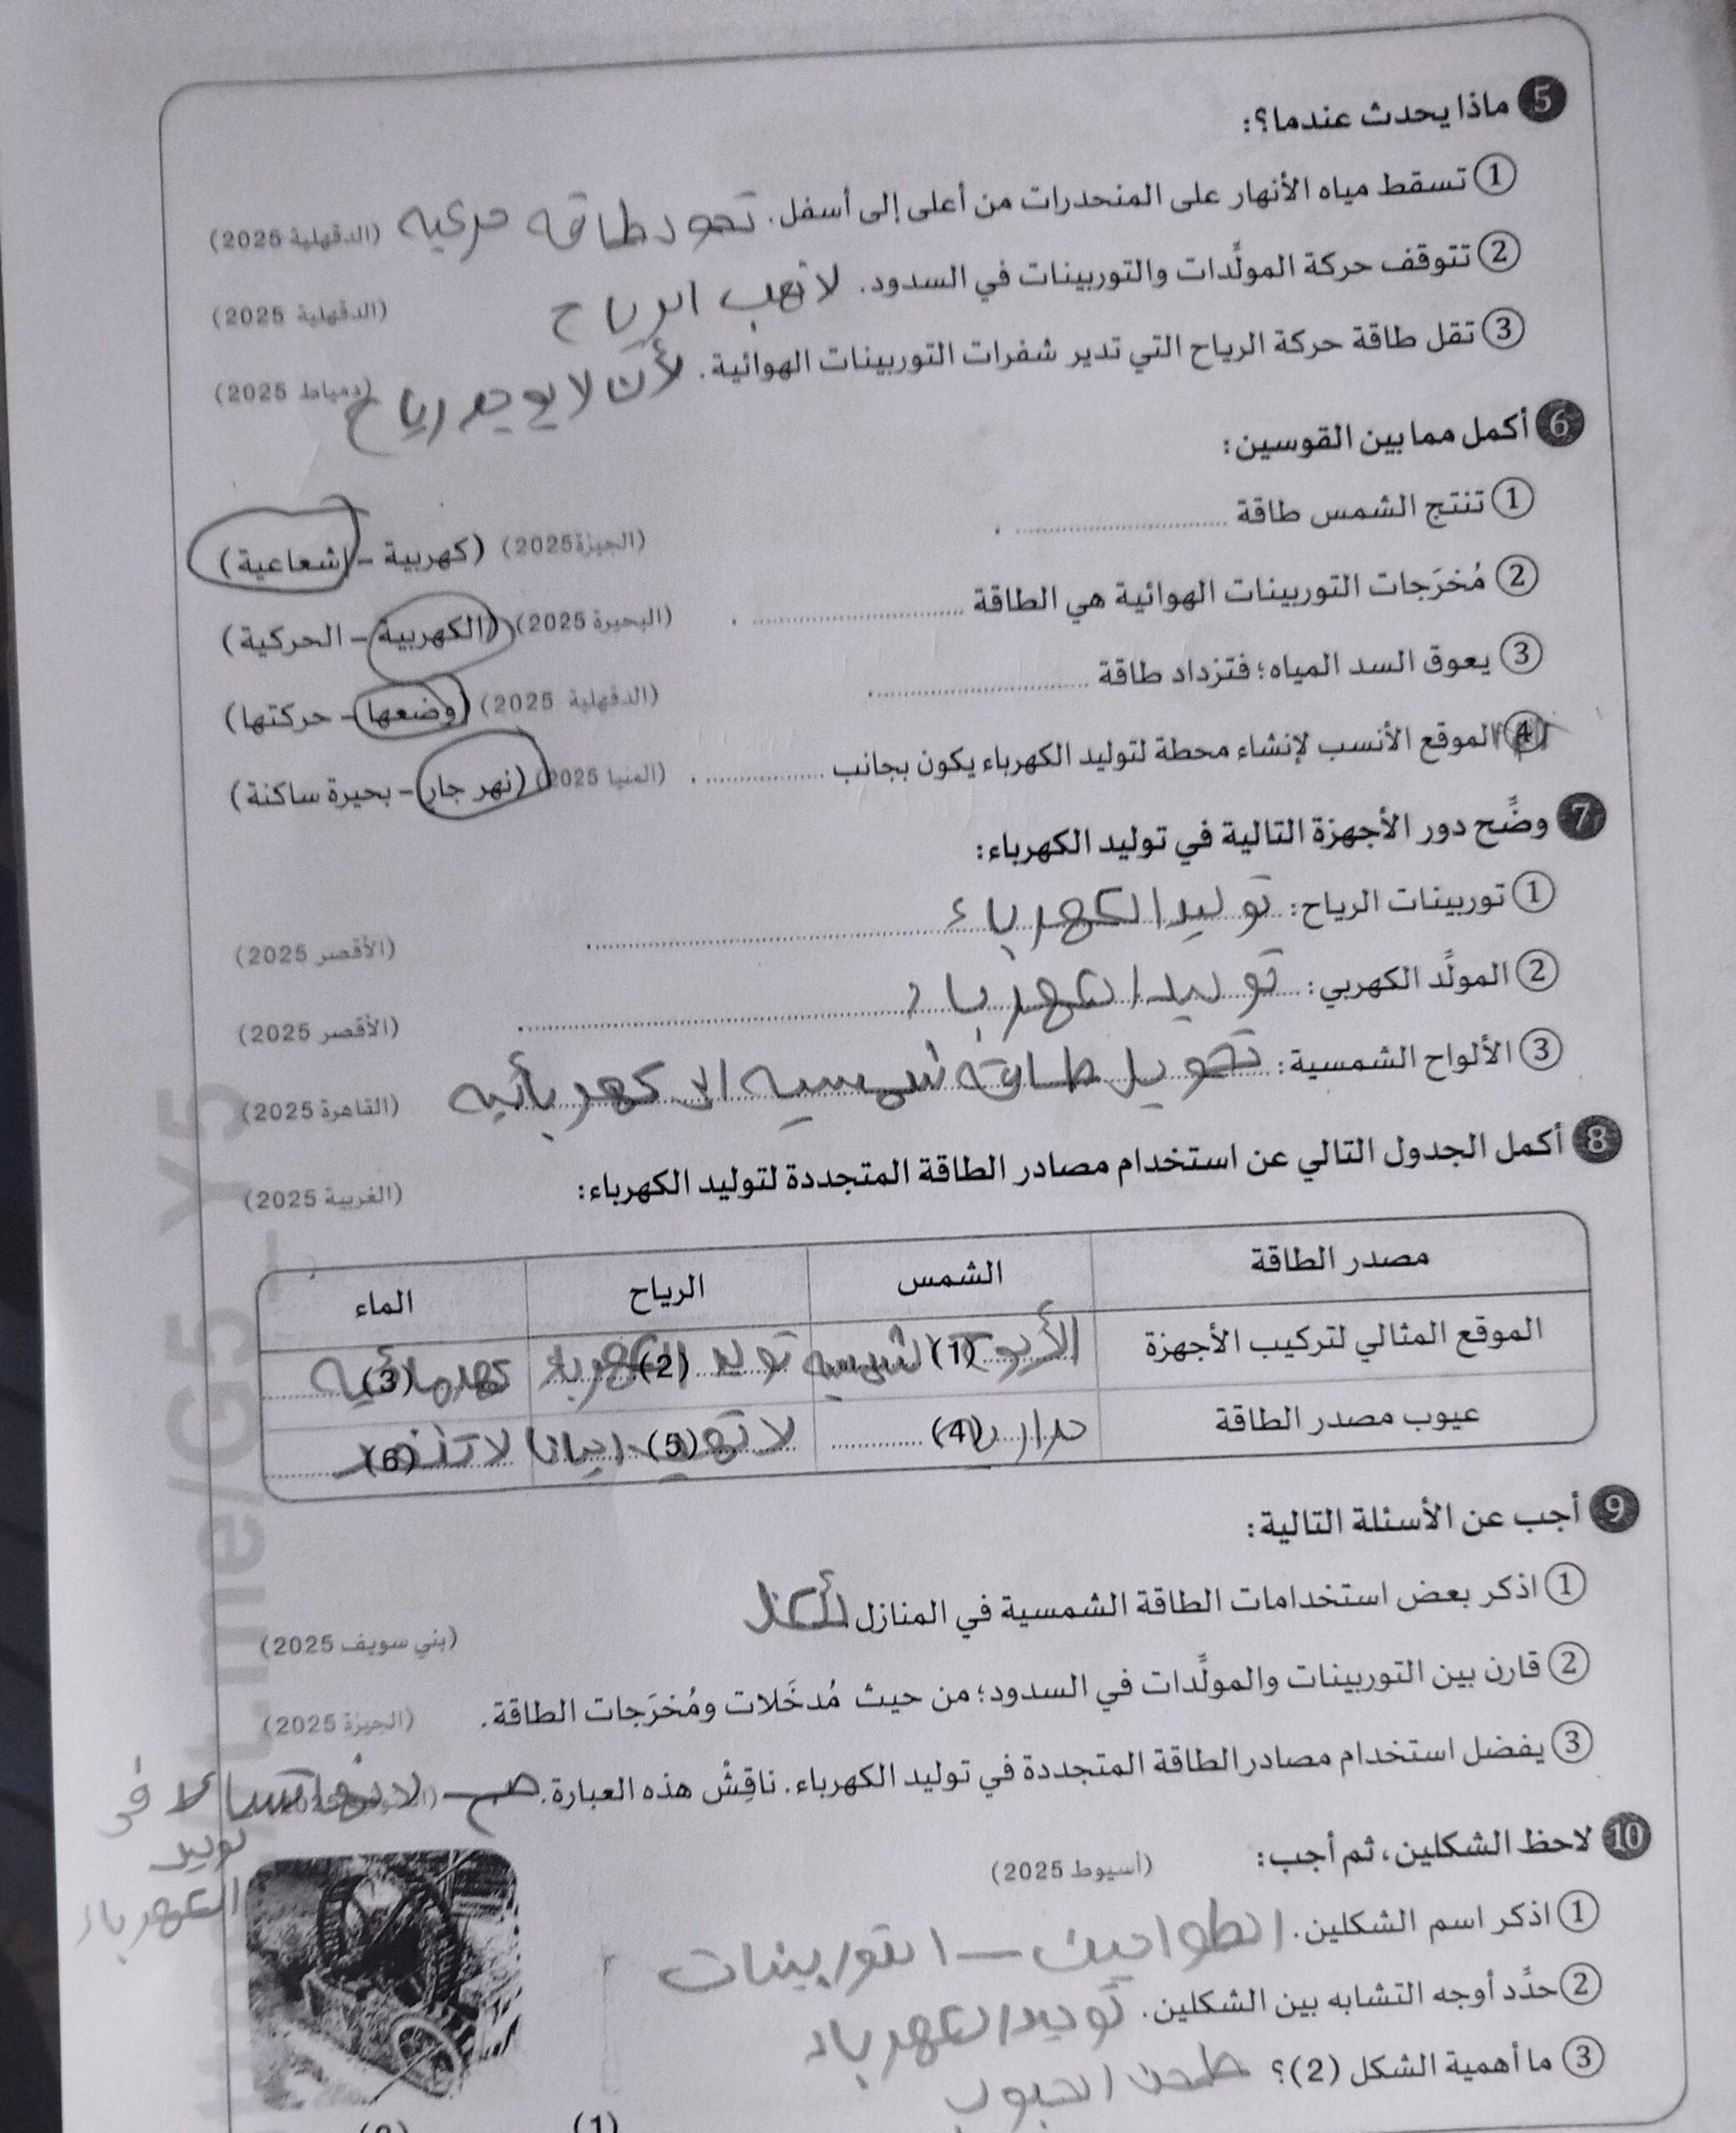 5 ماذا يحدث عندما؟:
1 تسقط مياه الأنهار على المنحدرات من أعلى إلى أسفل. طاقه حركيه (الدقهلية 2025)
2 تتوقف حركة المولِّدات والتوربينات في السدود. لا تهب الرياح (الدقهلية 2025)
3 تقل طاقة حركة الرياح التي تدير شفرات التوربينات الهوائية. لأن لا يوجد رياح (دمياط 2025)
6 أكمل مما بين القوسين:
1 تنتج الشمس طاقة .................... . (الجيزة2025) (كهربية - إشعاعية)
2 مُخرَجات التوربينات الهوائية هي الطاقة .................... . (البحيرة 2025) (الكهربية - الحركية)
3 يعوق السد المياه؛ فتزداد طاقة .................... . (الدقهلية 2025) (وضعها - حركتها)
4 الموقع الأنسب لإنشاء محطة لتوليد الكهرباء يكون بجانب ............ . (المنيا 2025) (نهر جار - بحيرة ساكنة)
7 وضِّح دور الأجهزة التالية في توليد الكهرباء:
1 توربينات الرياح: توليد الكهرباء (الأقصر 2025)
2 المولِّد الكهربي: توليد الكهرباء (الأقصر 2025)
3 الألواح الشمسية: تحويل طاقة شمسيه الى كهربأيه (القاهرة 2025)
8 أكمل الجدول التالي عن استخدام مصادر الطاقة المتجددة لتوليد الكهرباء: (الغربية 2025)
مصدر الطاقة الشمس الرياح الماء
الموقع المثالي لتركيب الأجهزة (1) الشمسيه (2) توليد الكهرباء (3)
عيوب مصدر الطاقة (4) (5) لا تهب احيانا (6) لا
9 أجب عن الأسئلة التالية:
1 اذكر بعض استخدامات الطاقة الشمسية في المنازل. (بني سويف 2025)
2 قارن بين التوربينات والمولِّدات في السدود؛ من حيث مُدخَلات ومُخرَجات الطاقة. (الجيزة 2025)
3 يفضل استخدام مصادر الطاقة المتجددة في توليد الكهرباء. ناقِشْ هذه العبارة. صح - في
توليد
الكهرباء
10 لاحظ الشكلين، ثم أجب: (أسيوط 2025)
1 اذكر اسم الشكلين. الطواحين - التوربينات
2 حدِّد أوجه التشابه بين الشكلين. توليد الكهرباء
3 ما أهمية الشكل (2)؟ طحن الحبوب
(1) (2)
t.me/G5_Y5